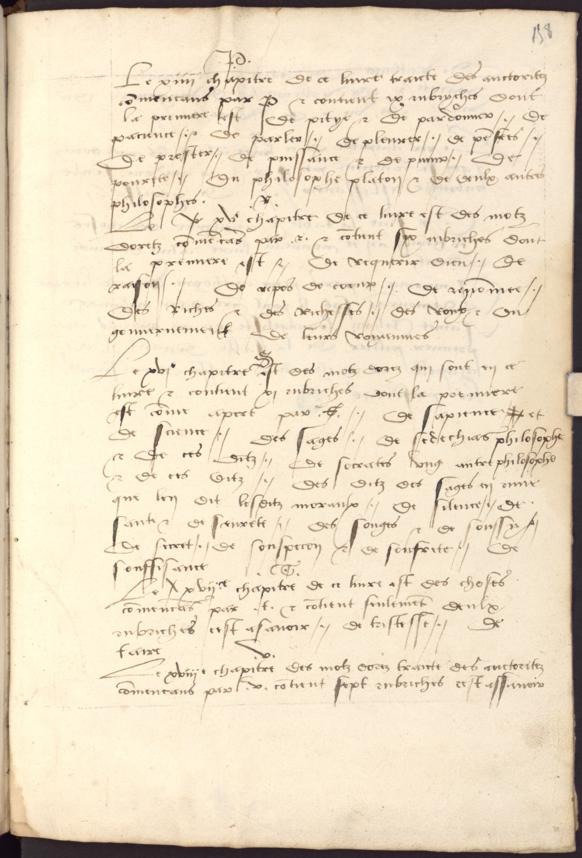 158
.P.
Le xiiii chapitre de ce livre traite des auctoritez
comencans par P et contient ix rubriches dont
la premiere est De pitye et de pardonner // De
pacience // De parler // De pleurer // De pensees //
De prester // De puissance et de punir // De
povrete // Du philosophe platon et de deulx autres
philosophes .
.R.
Le xve chapitre De ce livre est des motz
dorez comencas par .R. et cotient six rubriches dont
la premiere est De requerir dieu // De
raison // De repos de coeur // De renomee //
Des riches et des richesses // des Roys et du
gouvernement de leurs royaumes
.S.
Le xvie chapitre est des motz dorez qui sont en ce
livre et contient xi rubriches dont la premiere
est come apert par .S. // De sapience et
de science // des sages // de sedechias philosophe
et de ces ditz // De socrates ung autre philosophe
et de ces ditz // Des ditz des sages en
que len dit lesditz moraulx // De silence // De
sante et de seurete // Des songes et de
De secret // De souspecon et de soufrete // De
souffisance
.T.
Le xviie chapitre de ce livre est des choses
comencas par .t. et cotient seulement deulx
rubriches cest asavoir // de tristesse // De
taire
.V.
Le xviiie chapitre des motz dorez traite des auctoritez
comencans par .v. cotient sept rubriches cest assavoir